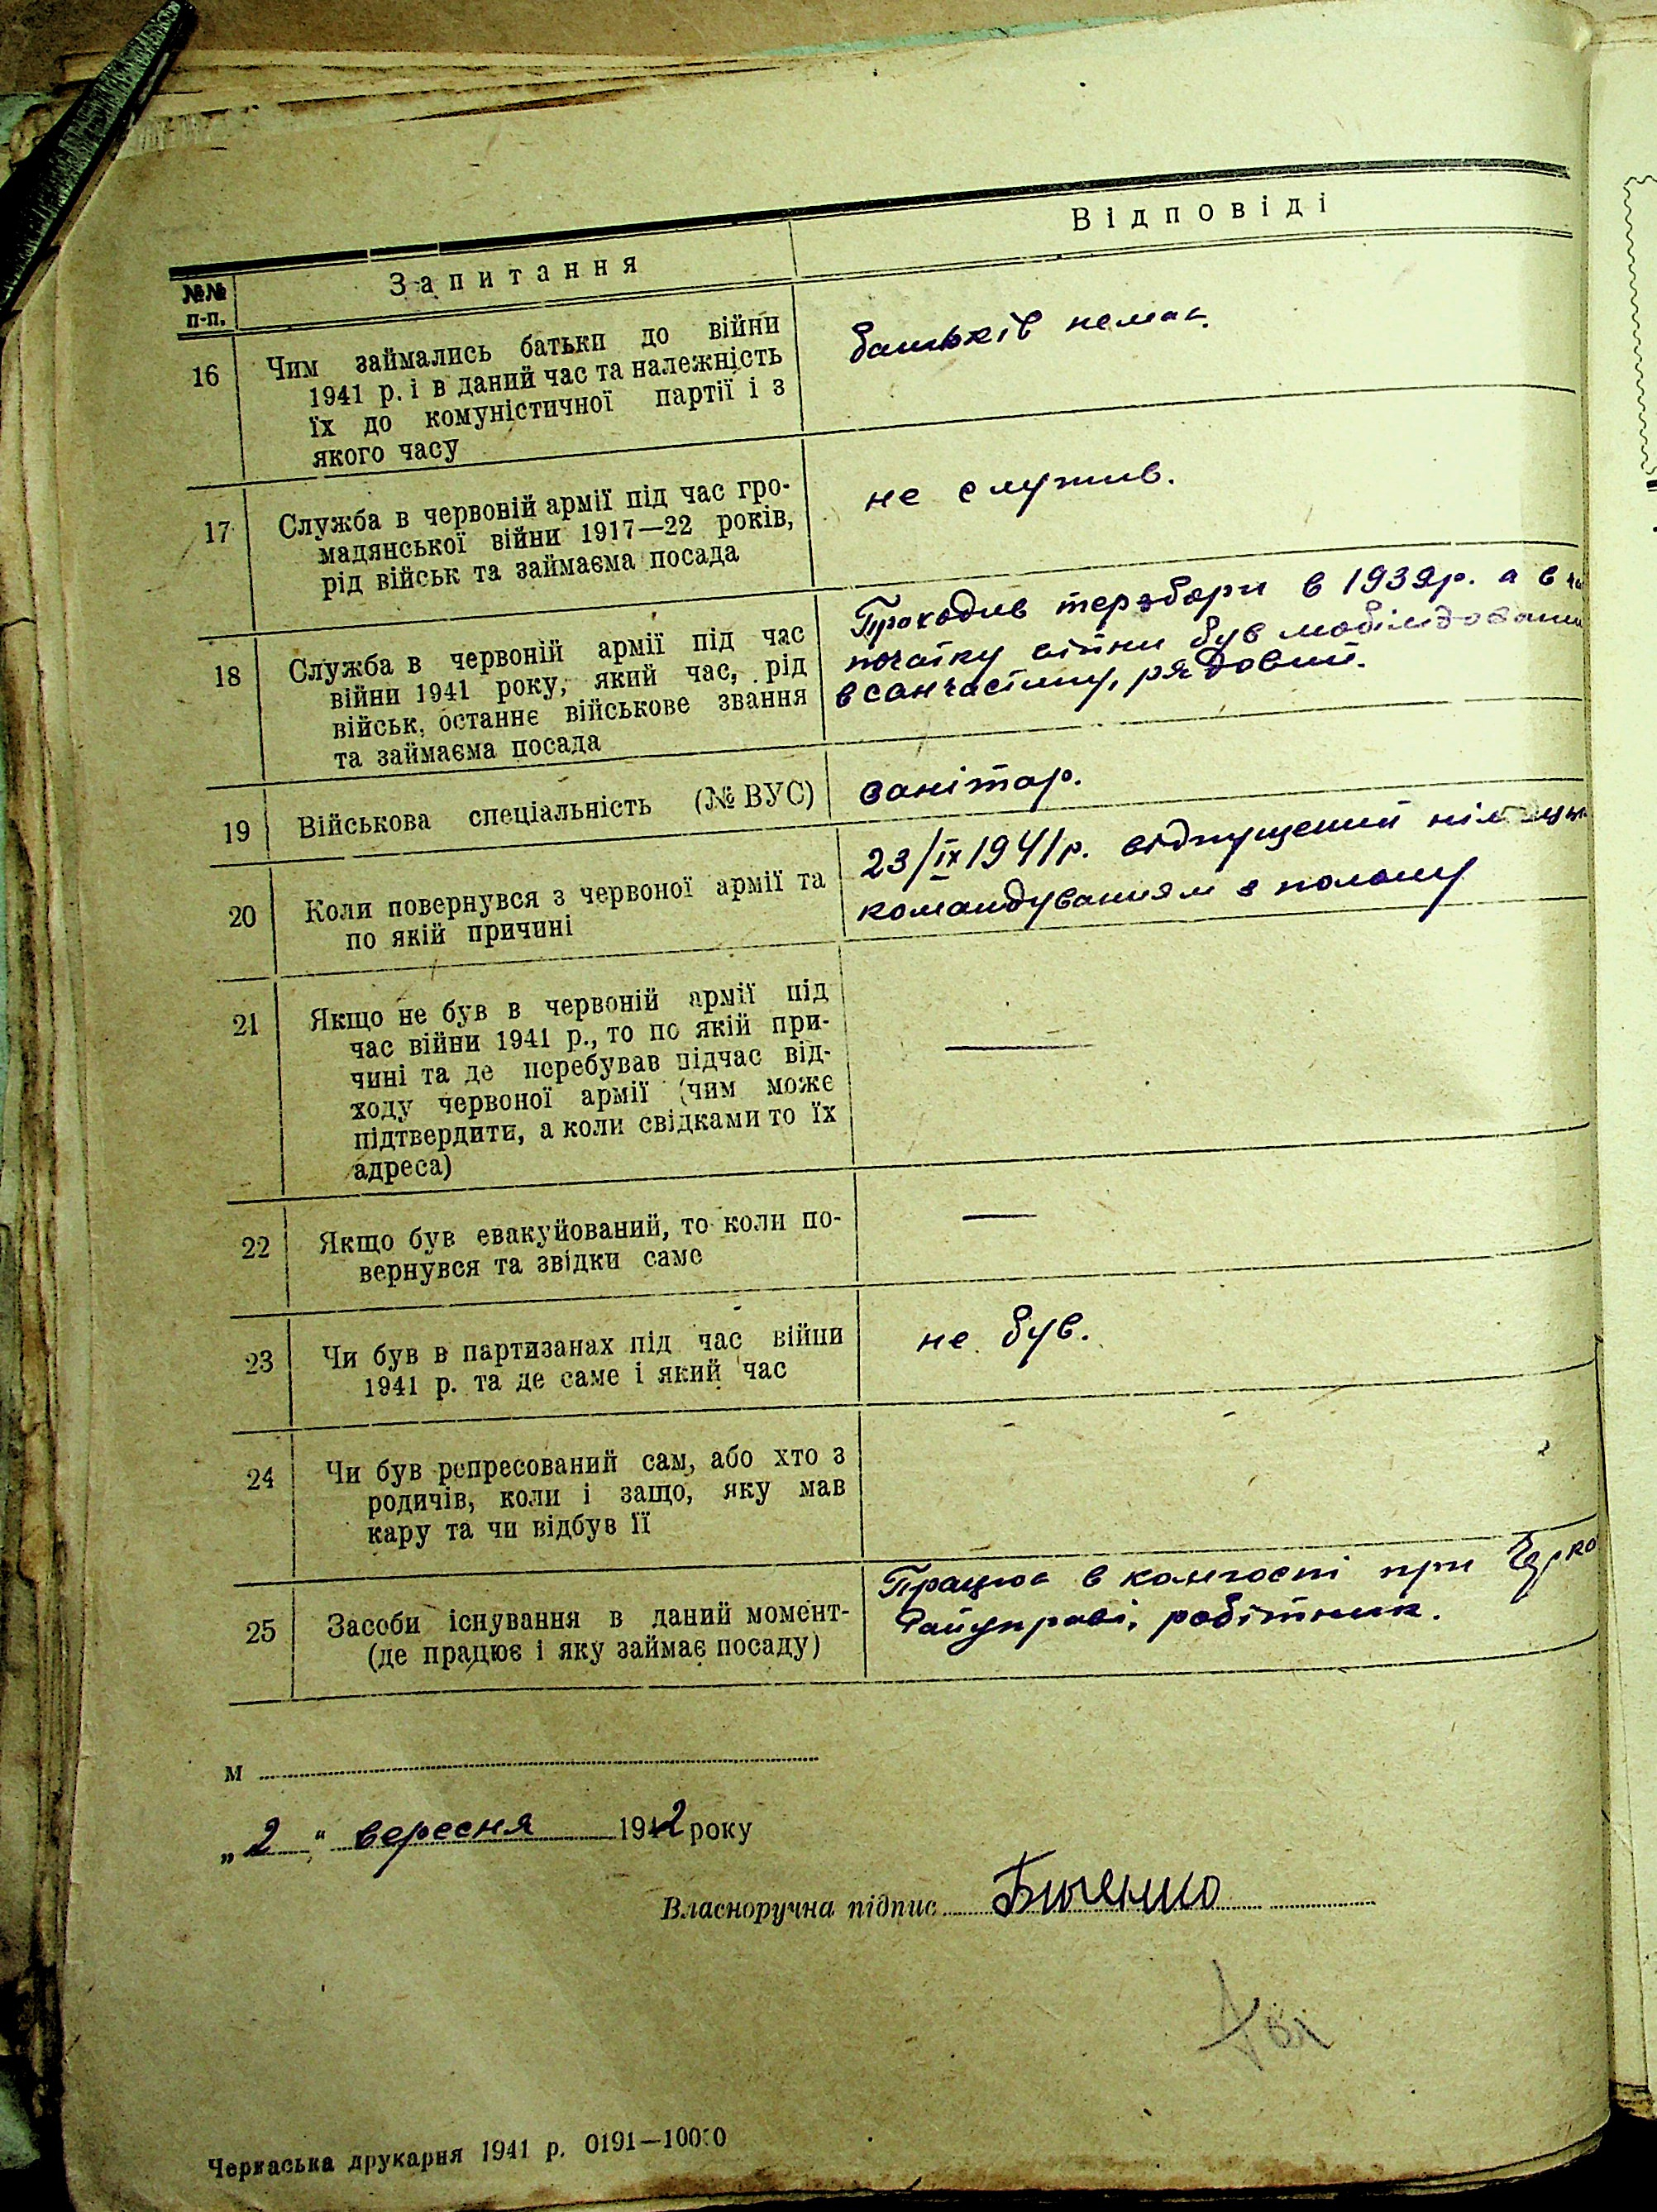 №№ п-п.
Запитання
Відповіді
16
Чим займались батьки до війни
1941 р. і в даний час та належність
їх до комуністичної партії і з
якого часу
батьків немає.
17
Служба в червоній армії під час гро-
мадянської війни 1917—22 років,
рід військ та займаєма посада
не служив.
18
Служба в червоній армії під час
війни 1941 року, який час, рід
військ, останнє військове звання
та займаєма посада
Проходив терзбори в 1939р. а в
початку війни був мобілізований
в санчастину, рядовий.
19
Військова спеціальність (№ ВУС)
санітар.
20
Коли повернувся з червоної армії та
по якій причині
23/IX 1941р. відпущений
командуванням з полону
21
Якщо не був в червоній армії під
час війни 1941 р., то по якій при-
чині та де перебував підчас від-
ходу червоної армії (чим може
підтвердити, а коли свідками то їх
адреса)
—
22
Якщо був евакуйований, то коли по-
вернувся та звідки саме
—
23
Чи був в партизанах під час війни
1941 р. та де саме і який час
не був.
24
Чи був репресований сам, або хто з
родичів, коли і защо, яку мав
кару та чи відбув її
25
Засоби існування в даний момент-
(де працює і яку займає посаду)
Працює в конгоспі при
Райуправі, робітник.
м
„2“ вересня 1942 року
Власноручна підпис
Черкаська друкарня 1941 р. 0191—10000